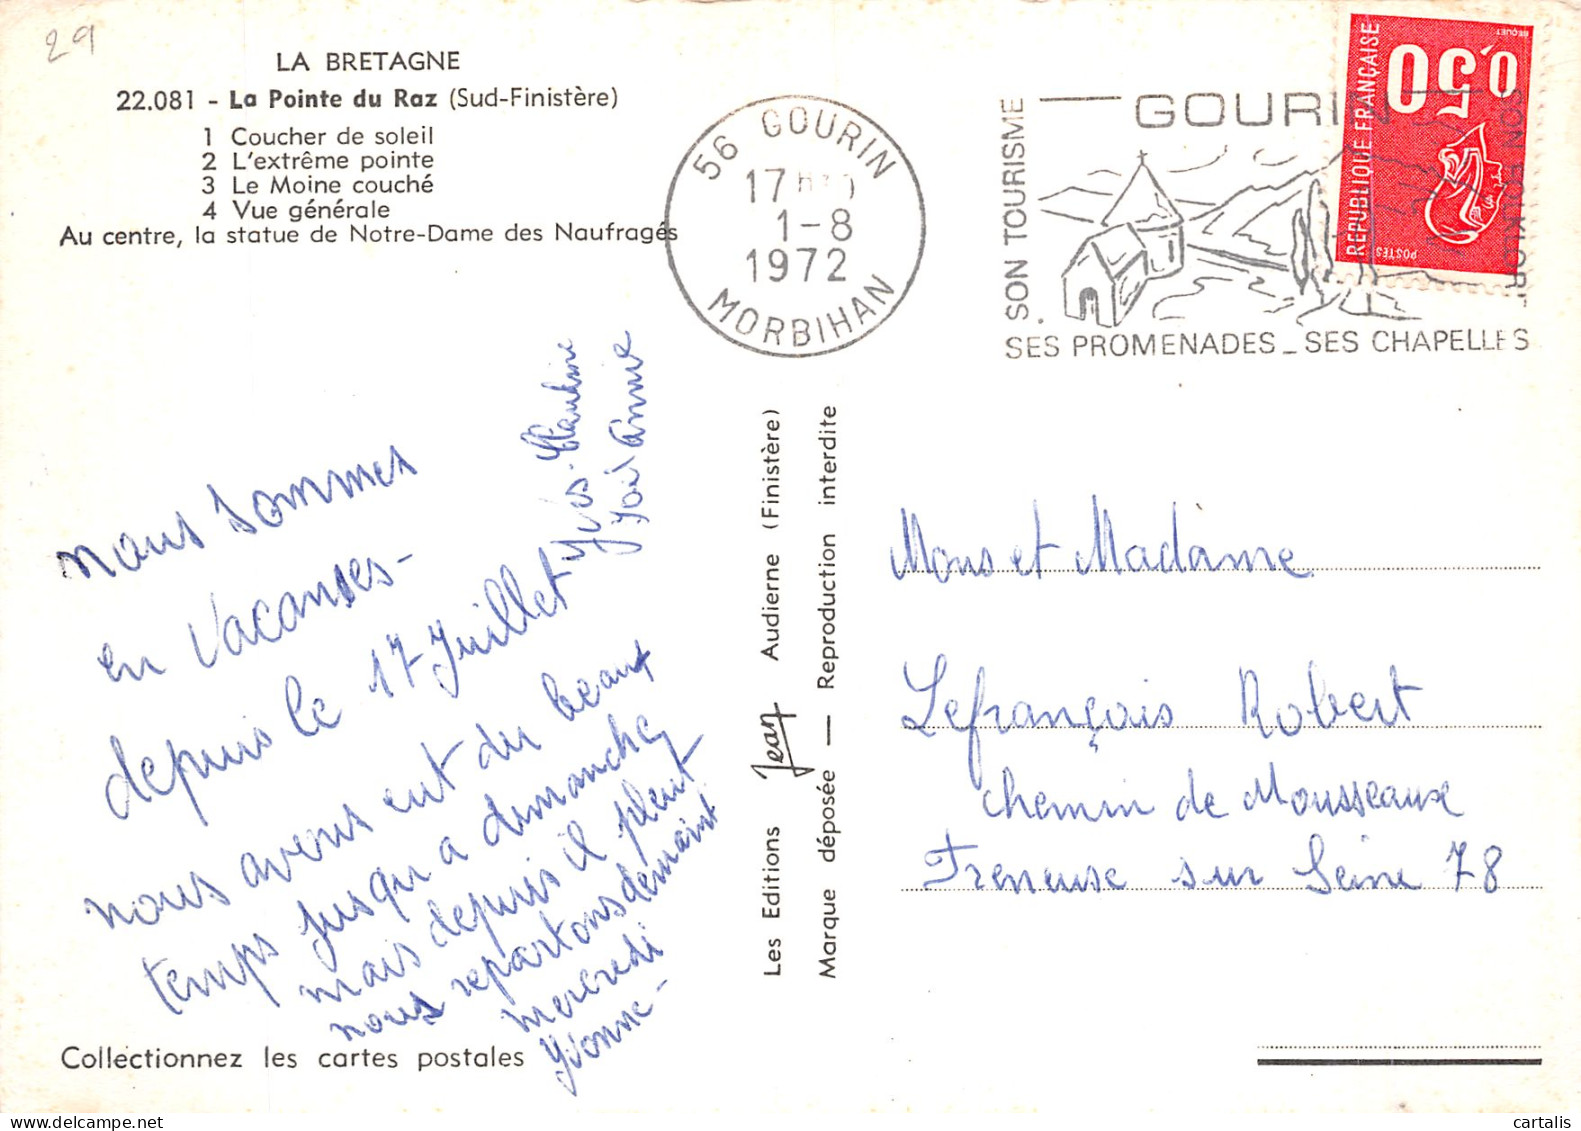 29
LA BRETAGNE
22.081 - La Pointe du Raz (Sud-Finistère)
1 Coucher de soleil
2 L'extrême pointe
3 Le Moine couché
4 Vue générale
Au centre, la statue de Notre-Dame des Naufragés
56 GOURIN
17 H
1-8
1972
MORBIHAN
GOURIN
SON TOURISME
SON FOLKLORE
SES PROMENADES _ SES CHAPELLES
0,50
REPUBLIQUE FRANÇAISE
POSTES
BEQUET
nous sommes
en vacanses-
depuis le 17 Juillet
nous avons eut du beaux
temps jusqu'a dimanche
mais depuis il pleut
nous repartons demaint
mercredi
Yvonne-
Yvos. Claudine
Joël Annie
Les Editions Jean Audierne (Finistère)
Marque déposée — Reproduction interdite
Mons et Madame
Lefrançois Robert
chemin de Mousseaux
Freneuse sur Seine 78
Collectionnez les cartes postales
cartalis